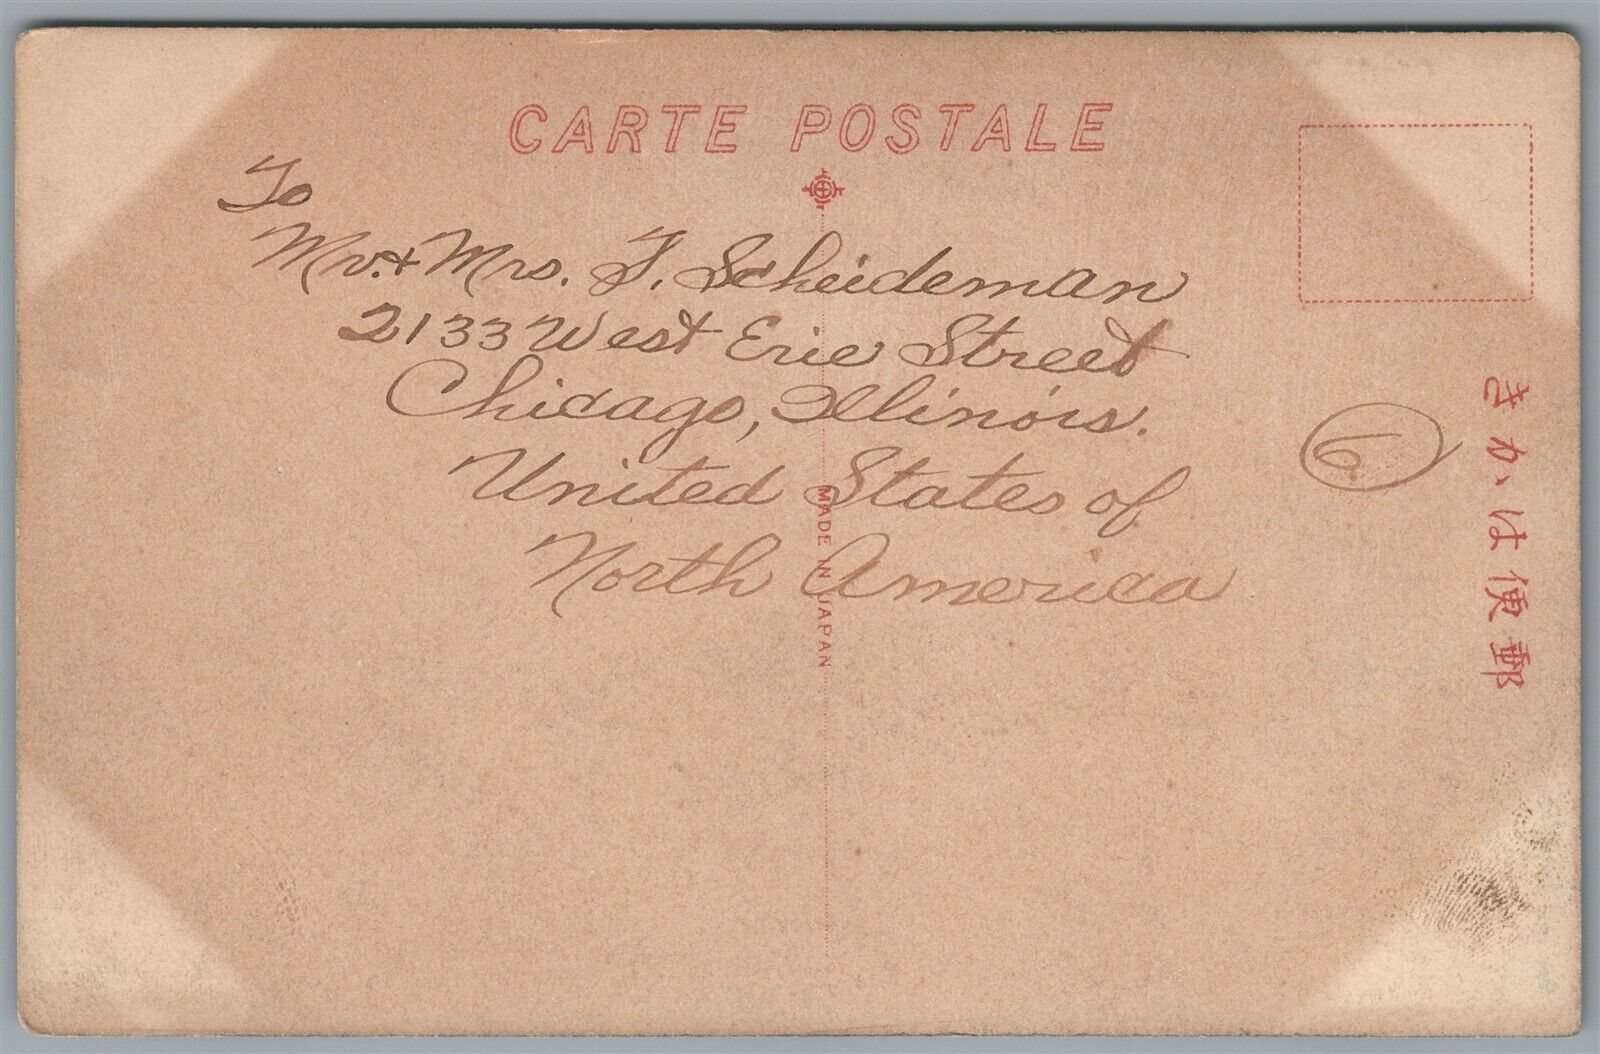 CARTE POSTALE
To
Mr. & Mrs. F. Scheideman
2133 West Erie Street
Chicago, Illinois.
United States of
North America
6
MADE IN JAPAN
きかは便郵